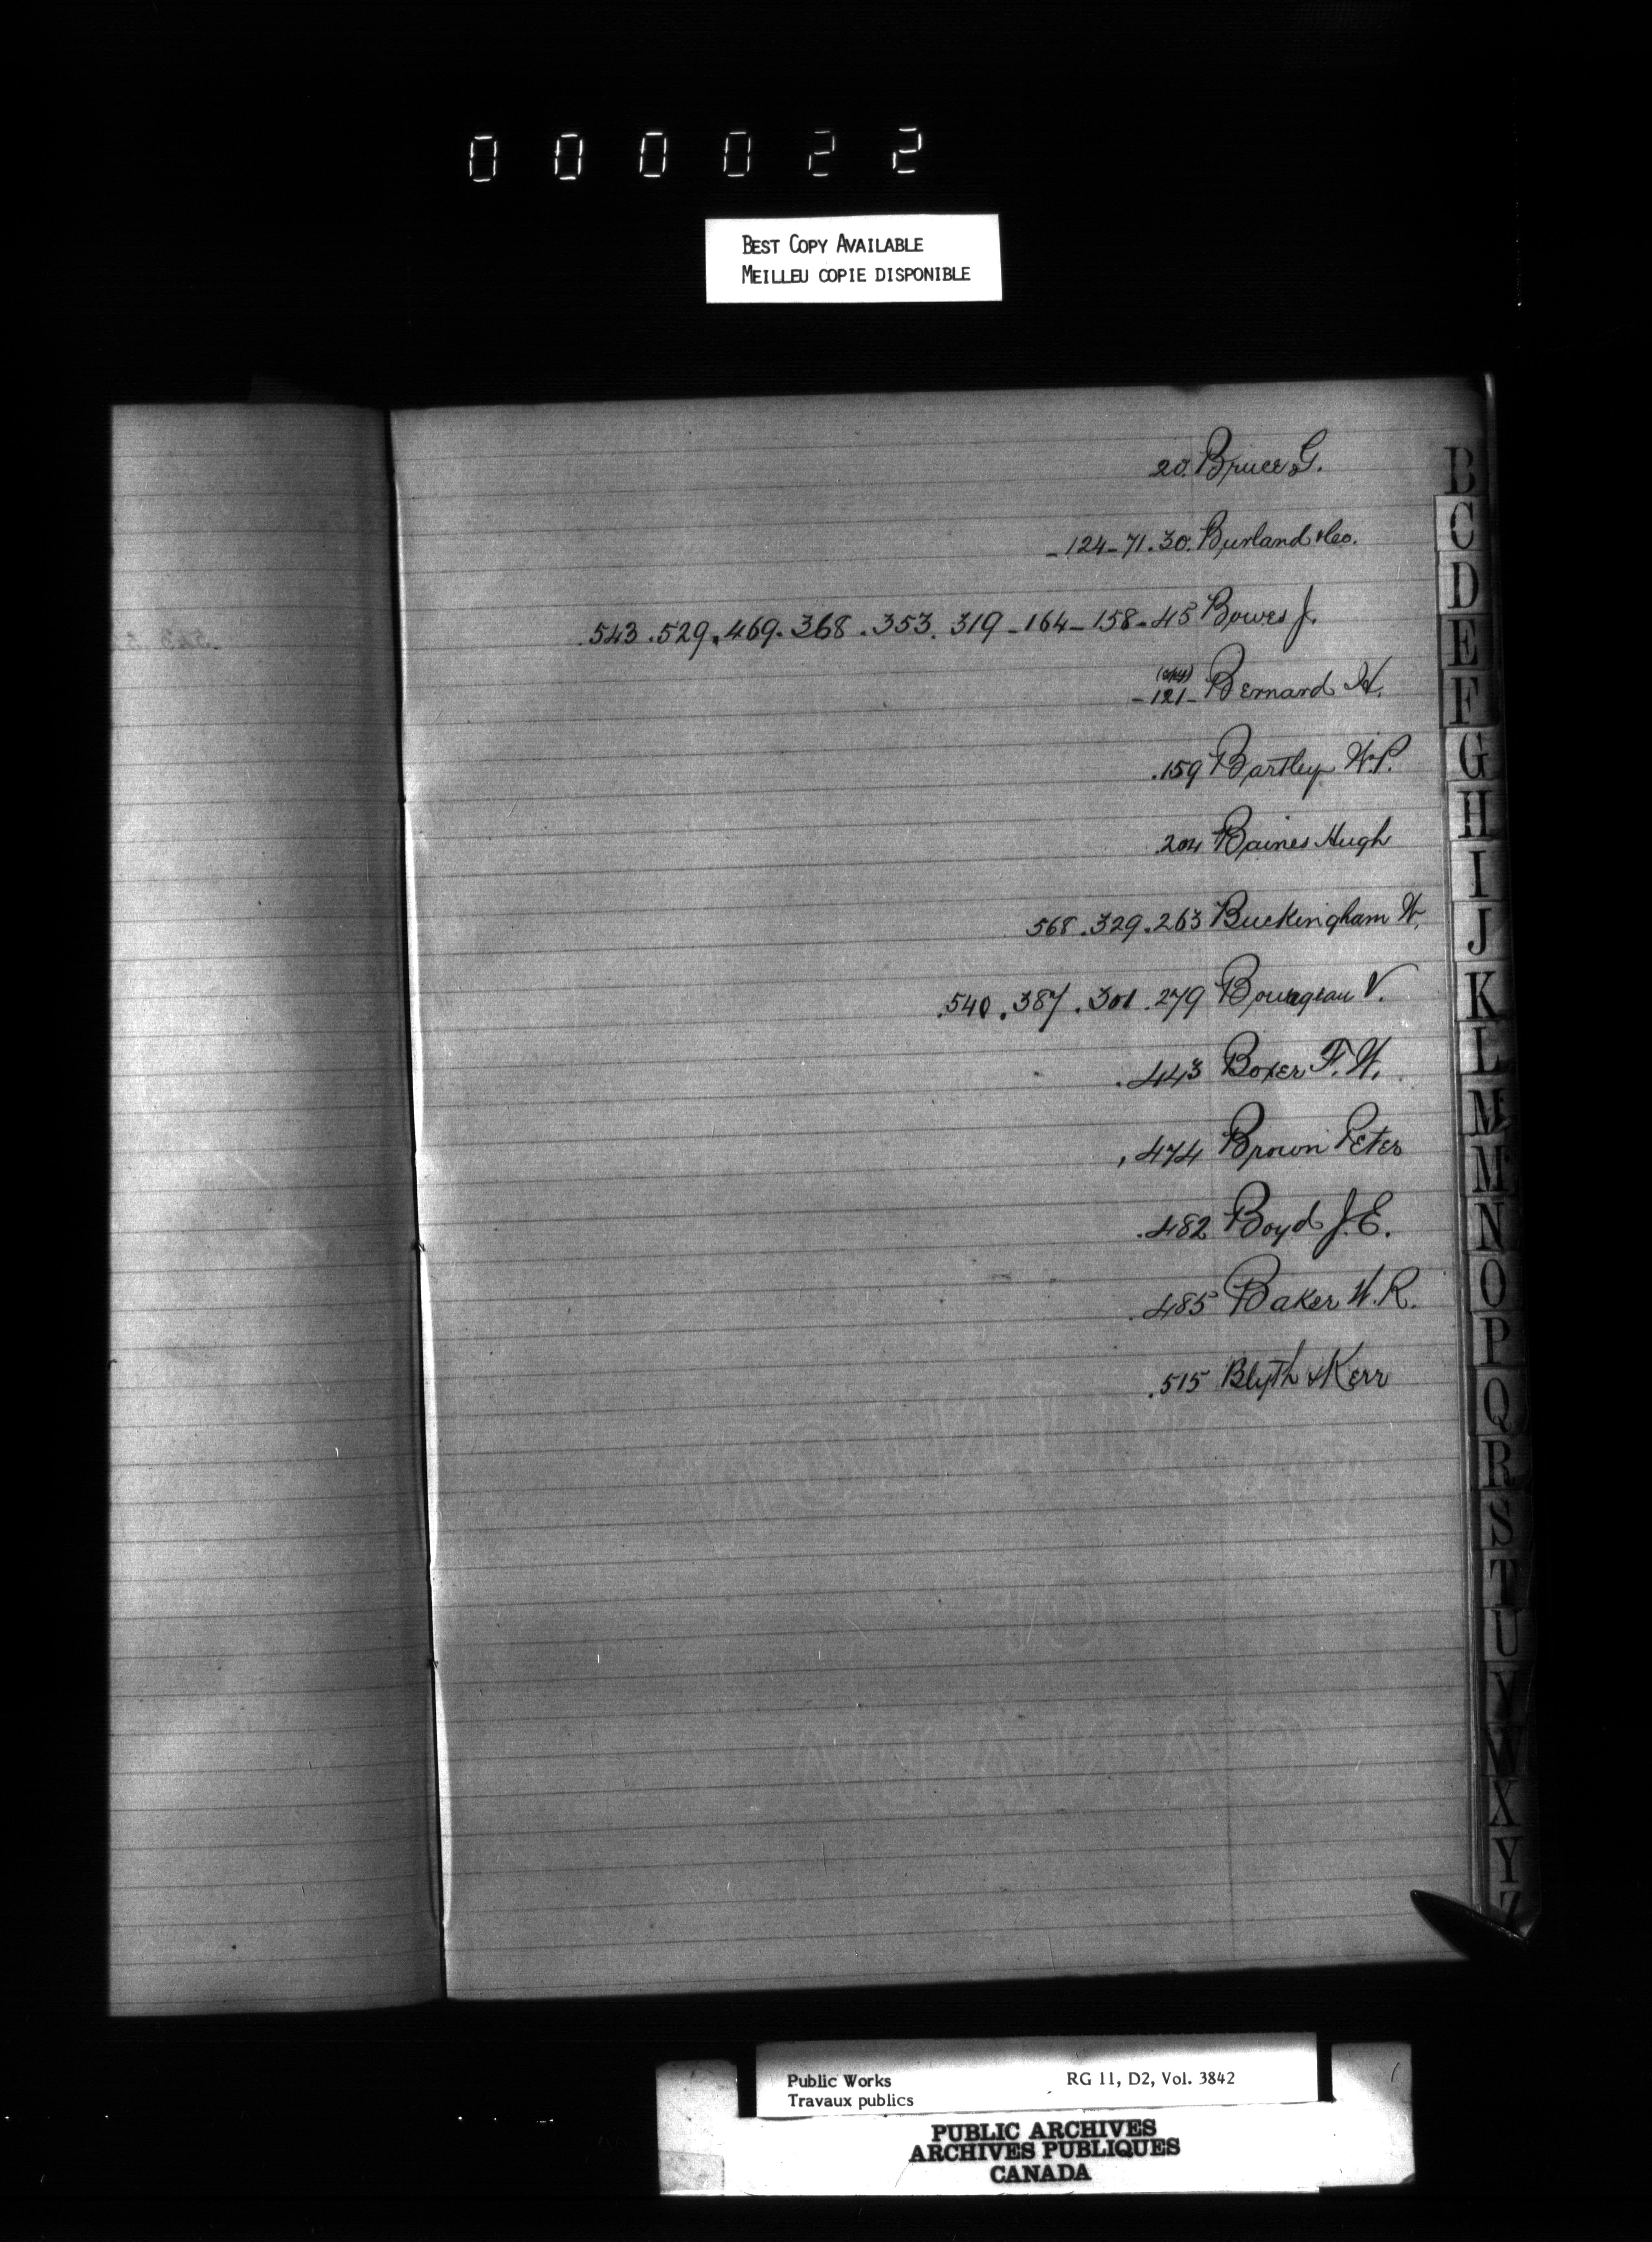 000022
BEST COPY AVAILABLE
MEILLEU COPIE DISPONIBLE
20. Bruce G.
- 124 - 71 . 30. Burland & Co.
.543 .529 .469 . 368 .353 . 319 - 164 - 158 - 45 Bowes J.
- 121 - Bernard H.
.159 Bartley W.P.
204 Baines Hugh
568 .329 .263 Buckingham W.
.540 .387 .301 .279 Bourgeau V.
.443 Boxer F.W.
.474 Brown Peter
.482 Boyd J.E.
.485 Baker W.R.
.515 Blyth & Kerr
B
C
D
E
F
G
H
I
J
K
L
Mc
M
N
O
P
Q
R
S
T
U
V
W
X
Y
Z
CANADA
Public Works RG 11, D2, Vol. 3842
Travaux publics
PUBLIC ARCHIVES
ARCHIVES PUBLIQUES
CANADA